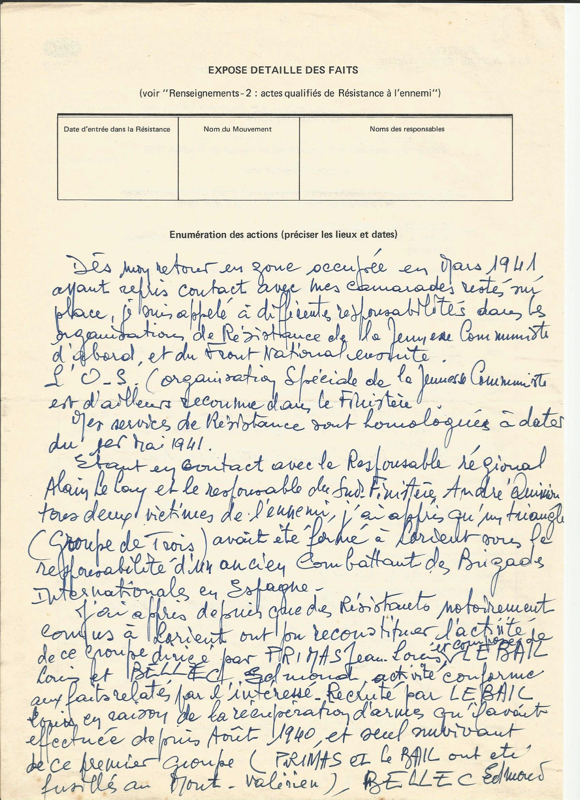 EXPOSE DETAILLE DES FAITS
(voir "Renseignements - 2 : actes qualifiés de Résistance à l'ennemi")
Date d'entrée dans la Résistance
Nom du Mouvement
Noms des responsables
Enumération des actions (préciser les lieux et dates)
Dès mon retour en zone occupée en Mars 1941
ayant repris contact avec mes camarades restés sur
place, je suis appelé à différentes responsabilités dans les
organisations de Résistance de la Jeunesse Communiste
d'abord, et du Front National ensuite.
L'O-S. (organisation Spéciale de la Jeunesse Communiste
est d'ailleurs reconnue dans le Finistère
Mes services de Résistance sont homologués à dater
du 1er Mai 1941.
Etant en contact avec le Responsable régional
Alain Le Lay et le responsable du Sud-Finistère, André
tous deux victimes de l'ennemi, j'ai appris qu'un triangle
(Groupe de Trois) avait été formé à Lorient sous la
responsabilité d'un ancien Combattant des Brigades
Internationales en Espagne.
J'ai appris depuis que des Résistants notoirement
connus à Lorient ont pu reconstituer l'activité de
de ce groupe dirigé par PRIMAS Jean-Louis, et composé de LE BAIL
Louis et BELLEC, Edmond, activité conforme
aux faits relatés par l'intéressé. Recruté par LE BAIL
Louis, en raison de la récupération d'armes qu'il avait
effectuée depuis Août 1940, et seul survivant
de ce premier groupe (PRIMAS et LE BAIL ont été
fusillés au Mont-Valérien), BELLEC Edmond